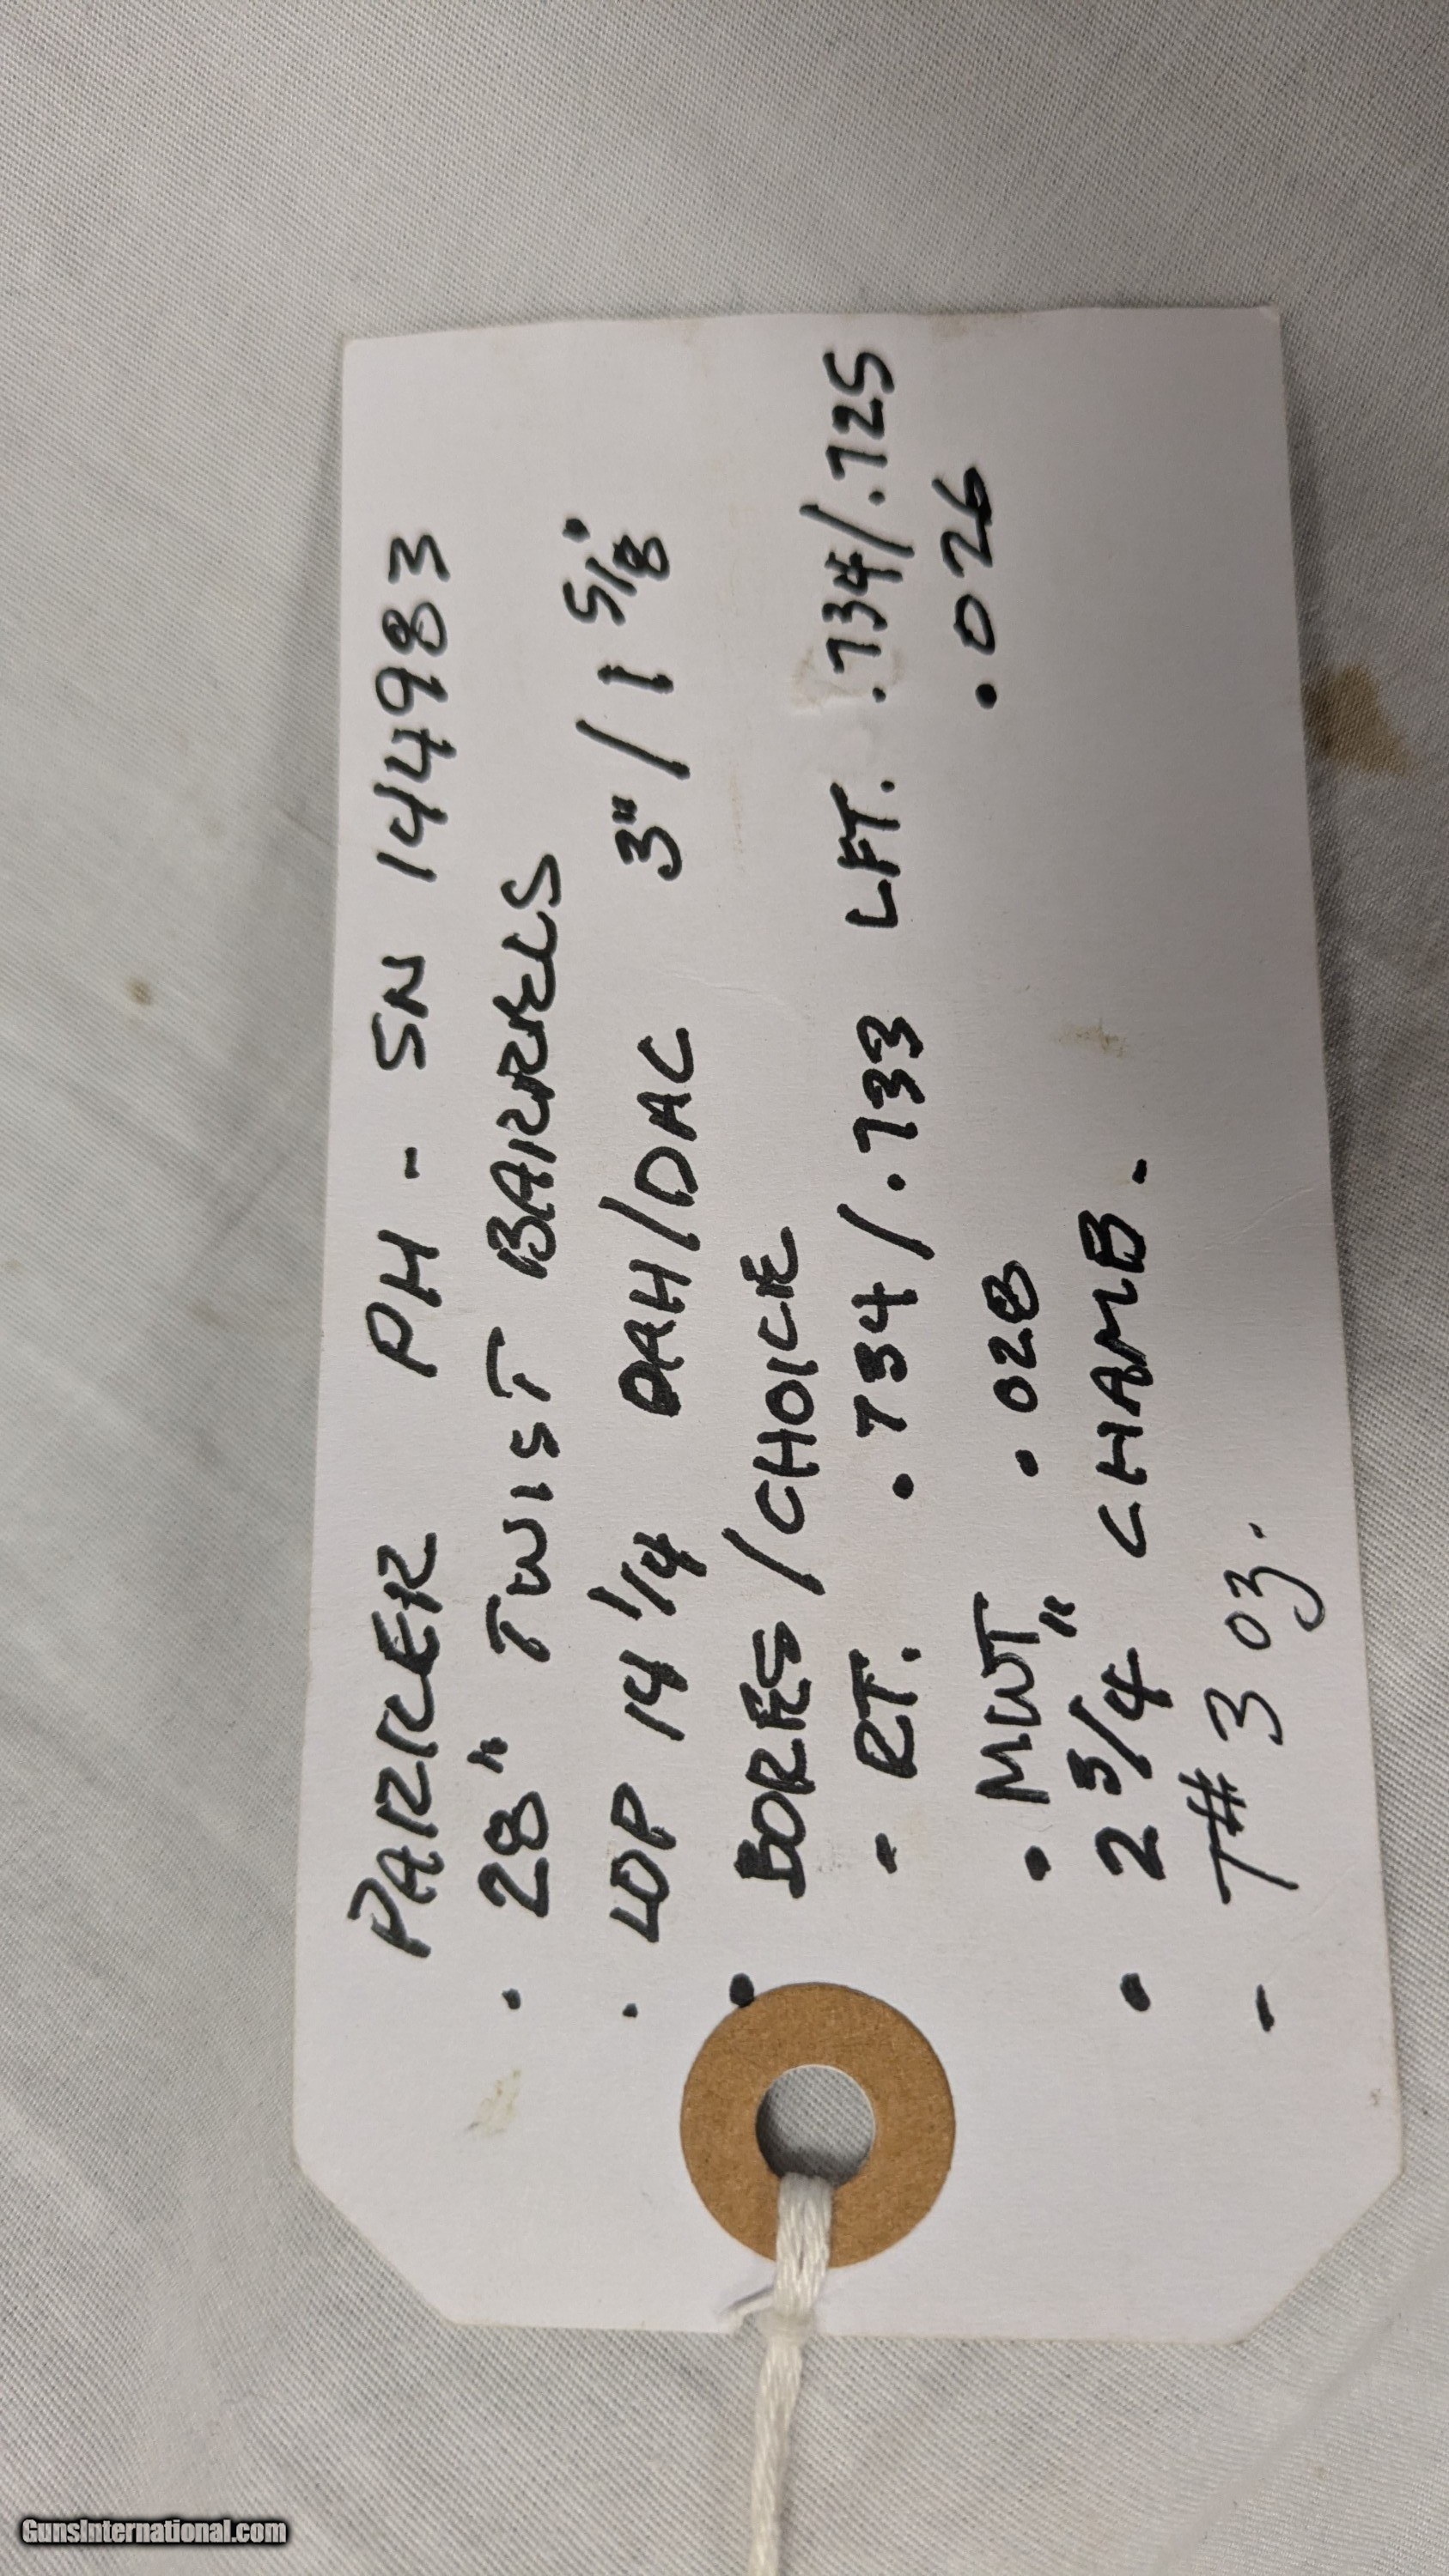 PARKER PH - SN 144983
· 28" TWIST BARRELS
· LOP 14 1/4 DAH/DAC 3"/1 5/8"
· BORES/CHOKE
- RT. .734/.733 LFT. .734/.725
· MWT .028 .026
· 2 3/4" CHAMB.
- T# 303.
GunsInternational.com